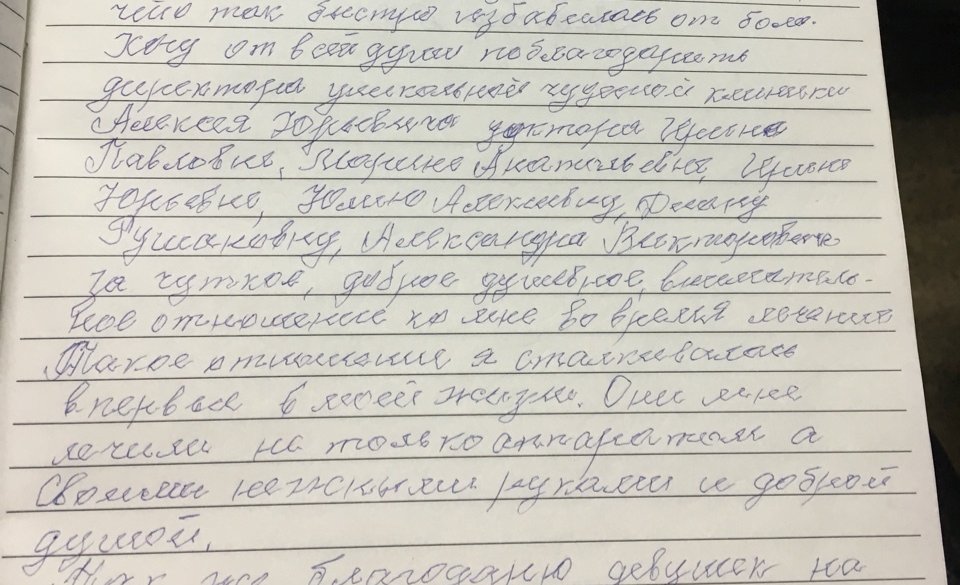 чено так быстро избавилась от боли.
Хочу от всей души поблагодарить
директора уникальной чудесной клиники
Алексея Юрьевича доктора Ирина
Павловне, Марине Анатольевне, Ирине
Юрьевне, Юлию Алексеевну, Диану
Рушановну, Александра Викторовича
за чуткое, доброе душевное, вниматель-
ное отношение ко мне во время лечения
Такое отношение я сталкивалась
впервые в моей жизни. Они меня
лечили не только аппаратом а
своими нежными руками и доброй
душой.
Так же благодарю девушек на